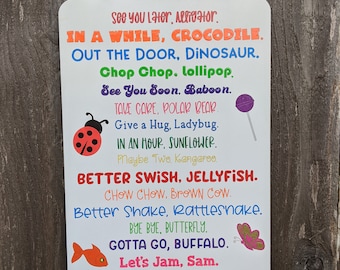 See You Later, Alligator.
IN A WHILE, CROCODILE.
OUT THE DOOR, DINOSAUR.
Chop Chop, Lollipop.
See You Soon, Baboon.
TAKE CARE, POLAR BEAR.
Give a Hug, Ladybug.
IN AN HOUR, SUNFLOWER.
Maybe Two Kangaroo
BETTER SWISH, JELLYFISH.
CHOW CHOW, BROWN COW.
Better Shake, Rattlesnake.
BYE BYE, BUTTERFLY.
GOTTA GO, BUFFALO.
Let's Jam, Sam.